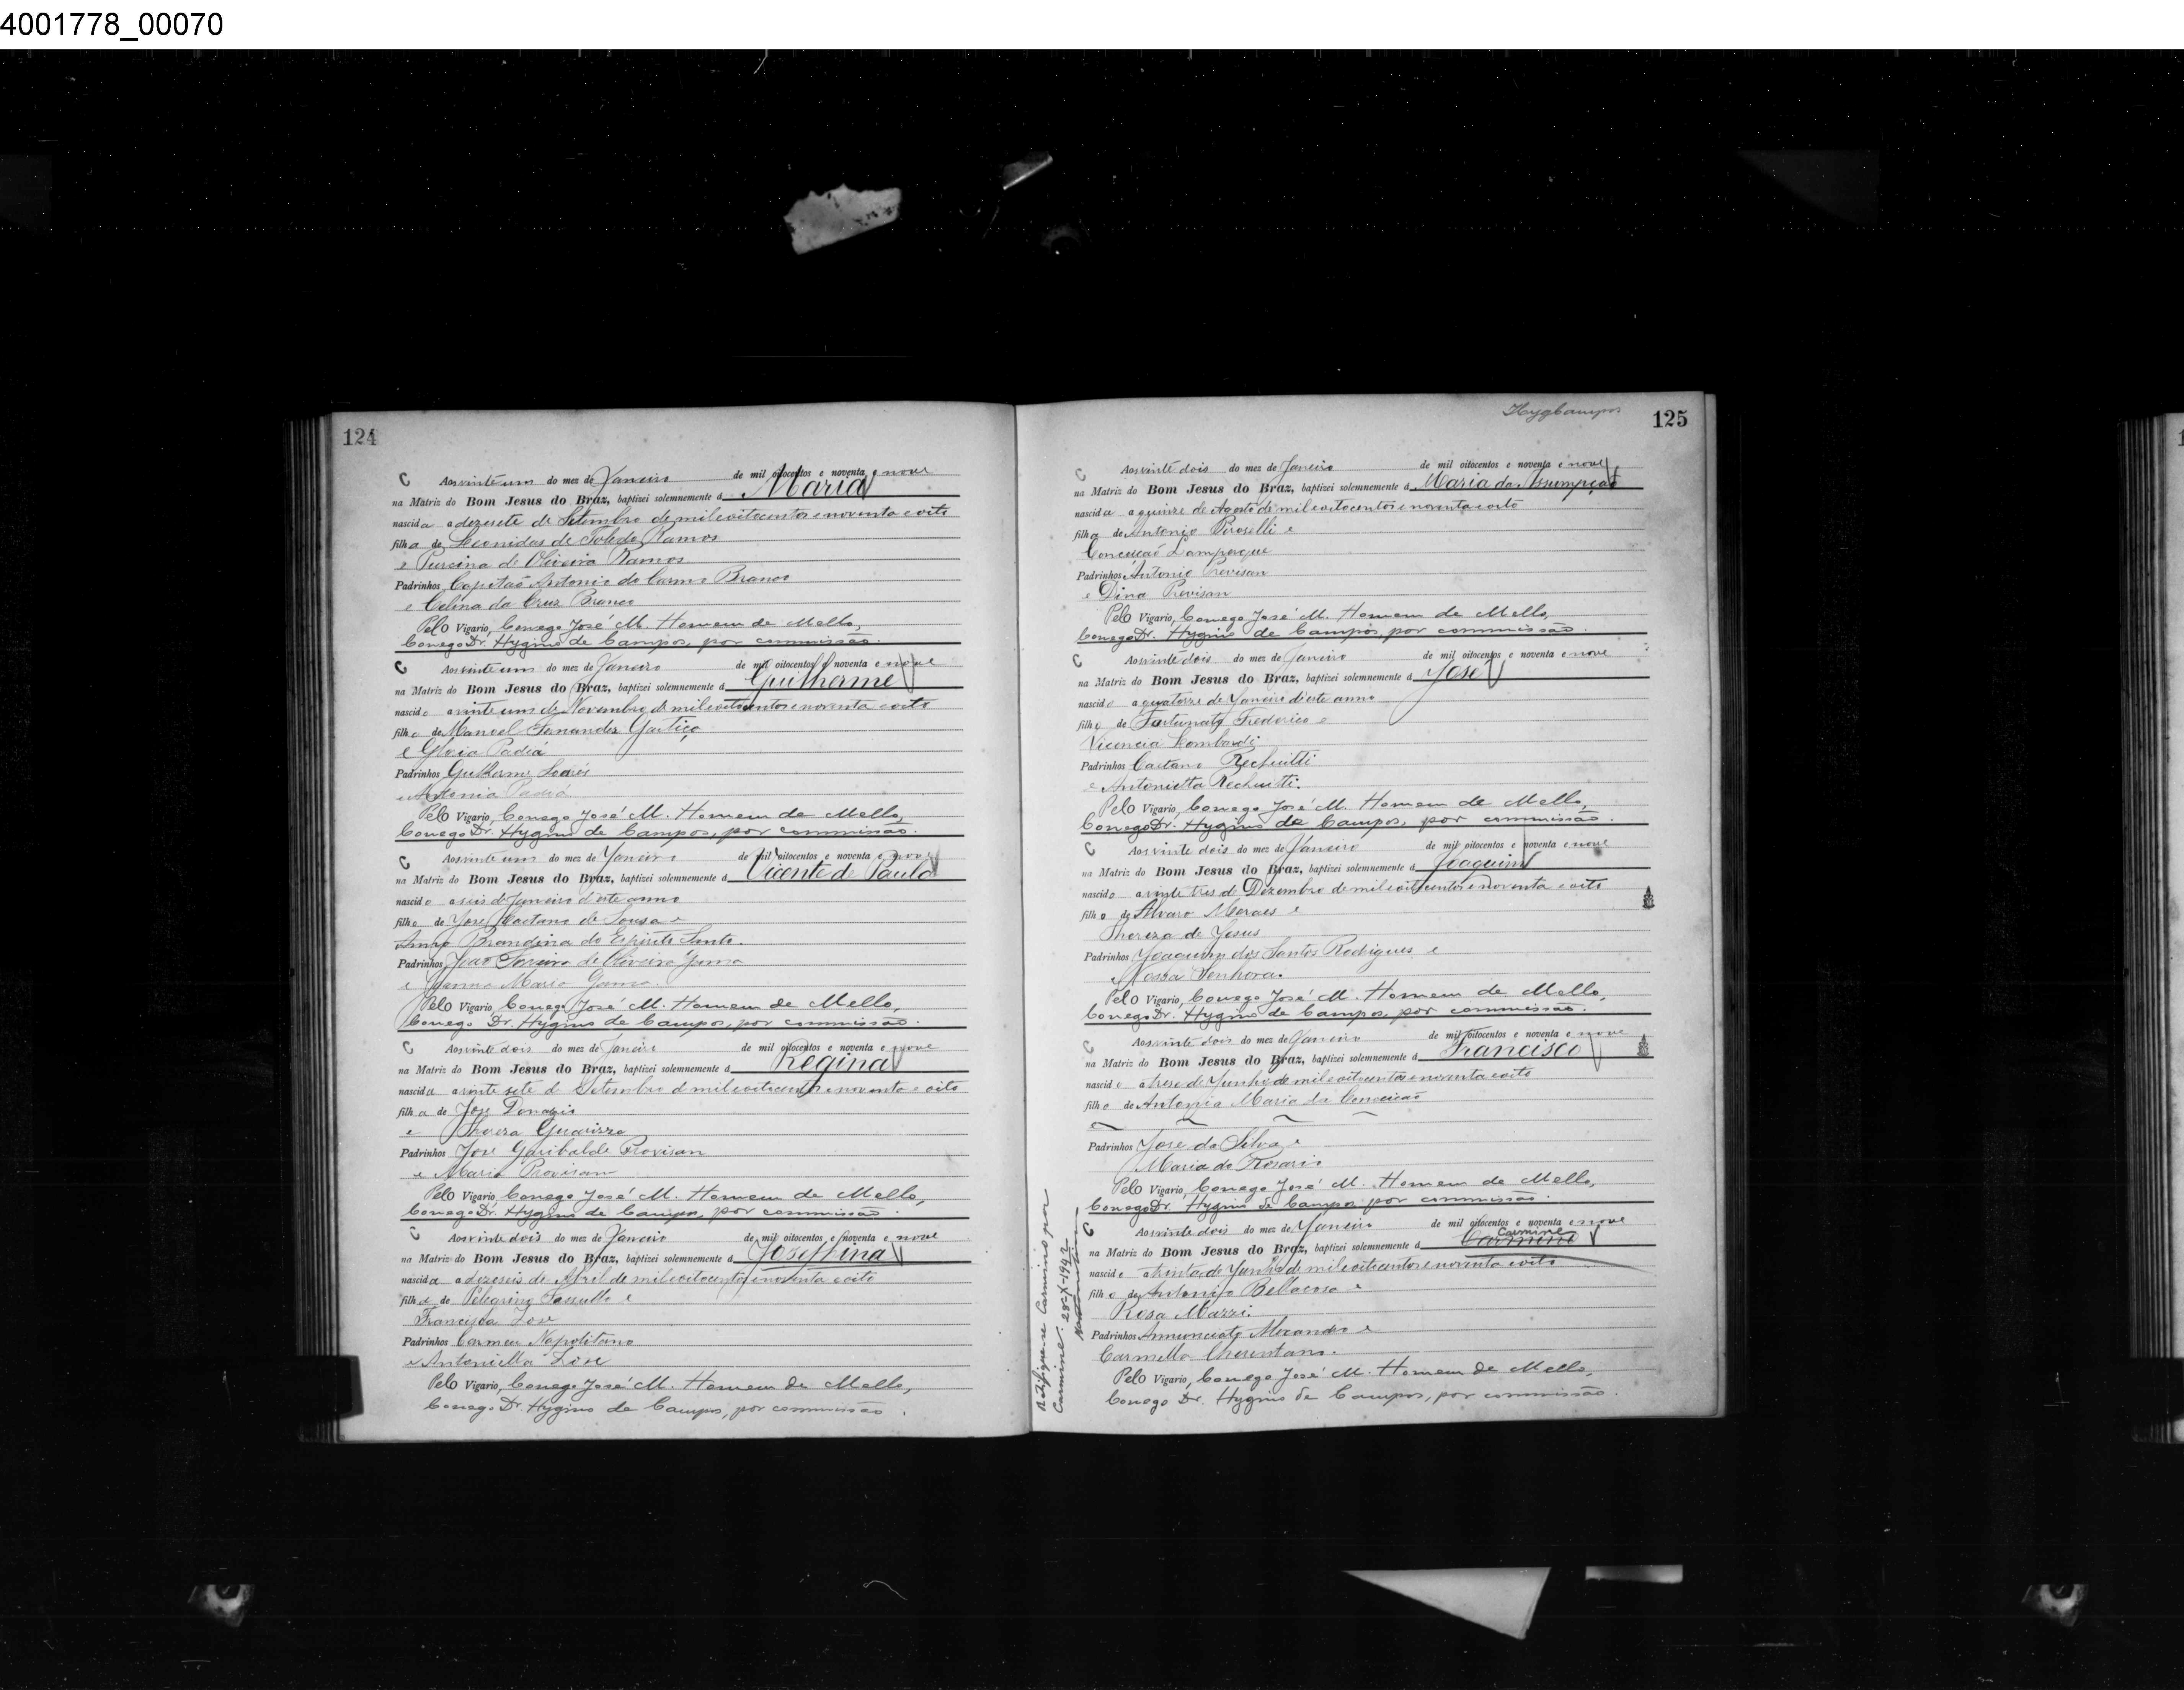 4001778_00070
124
C Aos vinte um do mez de Janeiro de mil oitocentos e noventa e nove
na Matriz do Bom Jesus do Braz, baptizei solemnemente á Maria
nascida a dezesete de Setembro de mil e oitocentos e noventa e oito
filha de Leonidas de Toledo Ramos
e Tursina de Oliveira Ramos
Padrinhos Capitaõ Antonio do Carmo Branco
e Celina da Cruz Branco
Pelo Vigario, Conego José M. Homem de Mello,
Conego Dr. Hygino de Campos, por commissão.
C Aos vinte um do mez de Janeiro de mil oitocentos e noventa e nove
na Matriz do Bom Jesus do Braz, baptizei solemnemente á Guilherme
nascido a vinte um de Novembro de mil e oitocentos e noventa e oito
filho de Manoel Fernandes
e Gloria Padiá
Padrinhos Guilherme
e Antonia Padiá
Pelo Vigario, Conego José M. Homem de Mello,
Conego Dr. Hygino de Campos, por commissão.
C Aos vinte um do mez de Janeiro de mil oitocentos e noventa e nove
na Matriz do Bom Jesus do Braz, baptizei solemnemente á Vicente de Paula
nascido a seis de Janeiro d'este anno
filho de José Caetano de Sousa e
Anna Brandina do Espirito Santo.
Padrinhos João Ferreira de Oliveira Gama
e Joanna Maria Gama.
Pelo Vigario, Conego José M. Homem de Mello,
Conego Dr. Hygino de Campos, por commissão.
C Aos vinte dois do mez de Janeiro de mil oitocentos e noventa e nove
na Matriz do Bom Jesus do Braz, baptizei solemnemente á Regina
nascida a vinte sete de Setembro de mil e oitocentos e noventa e oito
filha de José Donazio
e Thereza
Padrinhos José Garibalde Provisan
e Maria Provisam
Pelo Vigario, Conego José M. Homem de Mello,
Conego Dr. Hygino de Campos, por commissão.
C Aos vinte dois do mez de Janeiro de mil oitocentos e noventa e nove
na Matriz do Bom Jesus do Braz, baptizei solemnemente á Josephina
nascida a dezeseis de Abril de mil e oitocentos e noventa e oito
filha de Pelegrino e
Francisca Lose
Padrinhos Carmen Napolitano
e Antonietta Lose
Pelo Vigario, Conego José M. Homem de Mello,
Conego Dr. Hygino de Campos, por commissão.
HygCampos
125
C Aos vinte dois do mez de Janeiro de mil oitocentos e noventa e nove
na Matriz do Bom Jesus do Braz, baptizei solemnemente á Maria da Assumpçaõ
nascida a quinze de Agosto de mil e oitocentos e noventa e oito
filha de Antonio Piroselli e
Conceição
Padrinhos Antonio Previsan
e Dina Previsan
Pelo Vigario, Conego José M. Homem de Mello,
Conego Dr. Hygino de Campos, por commissão.
C Aos vinte dois do mez de Janeiro de mil oitocentos e noventa e nove
na Matriz do Bom Jesus do Braz, baptizei solemnemente á José
nascido a quatorze de Janeiro d'este anno
filho de Fortunato Frederico e
Vicencia Lombardi
Padrinhos Caetano Rechuitti
e Antonietta Rechuitti.
Pelo Vigario, Conego José M. Homem de Mello,
Conego Dr. Hygino de Campos, por commissão.
C Aos vinte dois do mez de Janeiro de mil oitocentos e noventa e nove
na Matriz do Bom Jesus do Braz, baptizei solemnemente á Joaquim
nascido a vinte tres de Dezembro de mil e oitocentos e noventa e oito
filho de Alvaro Moraes e
Thereza de Jesus
Padrinhos Joaquim dos Santos Rodrigues e
e Nossa Senhora.
Pelo Vigario, Conego José M. Homem de Mello,
Conego Dr. Hygino de Campos, por commissão.
C Aos vinte dois do mez de Janeiro de mil oitocentos e noventa e nove
na Matriz do Bom Jesus do Braz, baptizei solemnemente á Francisco
nascido a trese de Junho de mil e oitocentos e noventa e oito
filho de Antonia Maria da Conceicaõ
Padrinhos José da Silva e
Maria do Rosario
Pelo Vigario, Conego José M. Homem de Mello,
Conego Dr. Hygino de Campos, por commissão.
C Aos vinte dois do mez de Janeiro de mil oitocentos e noventa e nove
Carmine
na Matriz do Bom Jesus do Braz, baptizei solemnemente á Carmino
nascido a trinta de Junho de mil e oitocentos e noventa e oito
filho de Antonio Bellacosa e
Rosa Mazzi.
Padrinhos Annunciato e
Carmella
Pelo Vigario, Conego José M. Homem de Mello,
Conego Dr. Hygino de Campos, por commissão.
Ratifique-se Carmimo por
Carmine. 28-X-1942